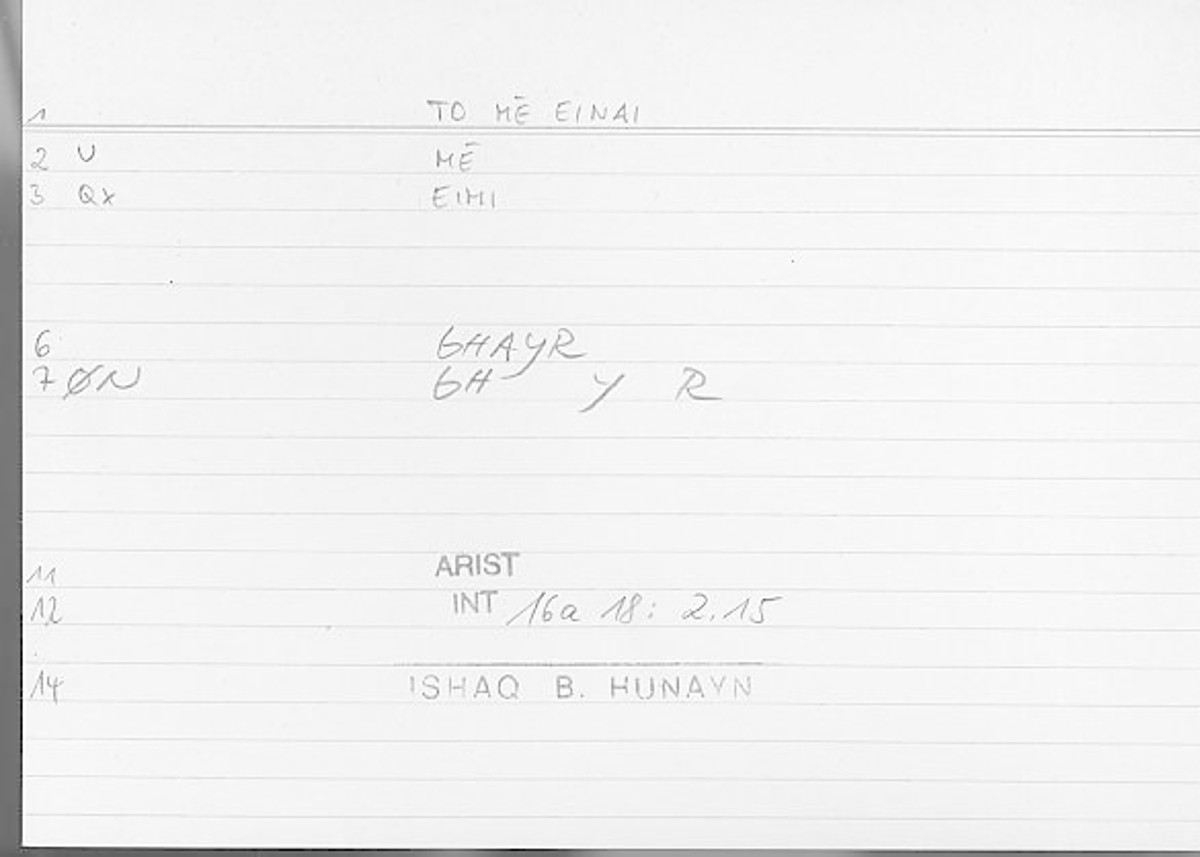 1 TO MĒ EINAI
2 U MĒ
3 Qx EIMI
6 GHAYR
7 ØN GH Y R
11 ARIST
12 INT 16a 18: 2.15
14 ISHAQ B. HUNAYN